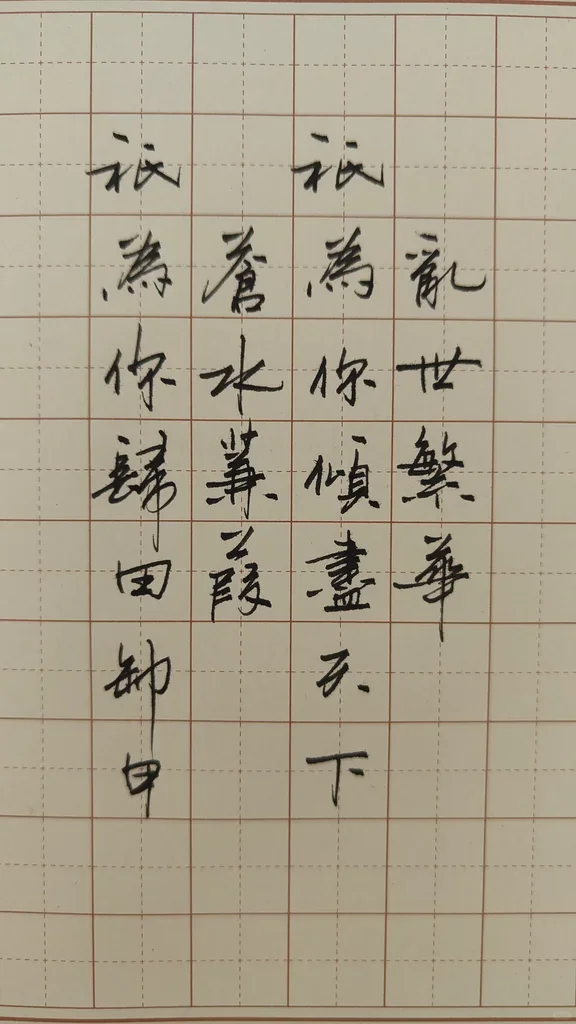 亂世繁華
祇為你傾盡天下
蒼水蒹葭
祇為你歸田卸甲